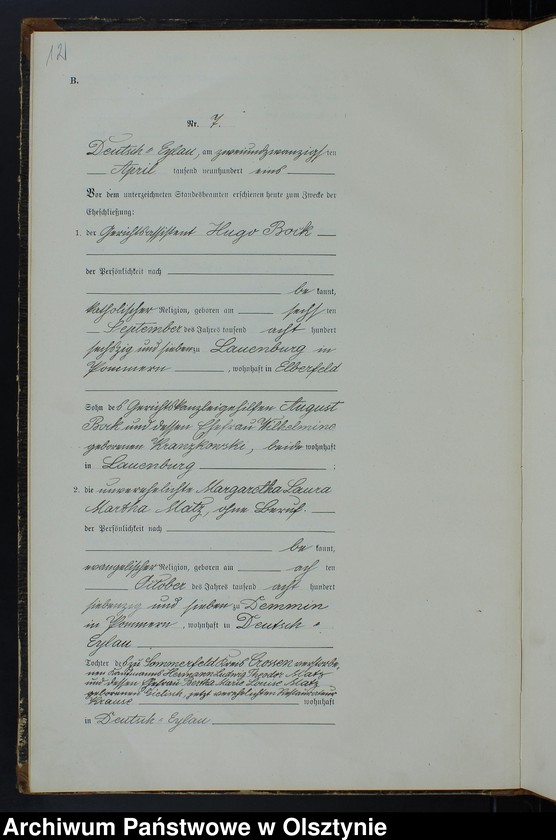 12
B.
Nr. 7.
Deutsch-Eylau, am zweiundzwanzigsten
April tausend neunhundert eins
Vor dem unterzeichneten Standesbeamten erschienen heute zum Zwecke der
Eheschließung:
1. der Gerichtsassistent Hugo Bock
der Persönlichkeit nach
be kannt,
katholischer Religion, geboren am sechsten
September des Jahres tausend acht hundert
sechszig und sieben zu Lauenburg in
Pommern, wohnhaft in Elberfeld
Sohn des Gerichtskanzleigehilfen August
Bock und dessen Ehefrau Wilhelmine
geborenen Kranzkowski, beide wohnhaft
in Lauenburg ;
2. die unverehelichte Margaretha Laura
Martha Matz, ohne Beruf.
der Persönlichkeit nach
be kannt,
evangelischer Religion, geboren am achten
October des Jahres tausend acht hundert
siebenzig und sieben zu Demmin
in Pommern, wohnhaft in Deutsch-
Eylau
Tochter des zu Sommerfeld Kreis Crossen verstorbe-
nen Kaufmanns Hermann Ludwig Theodor Matz
und dessen Ehefrau Bertha Marie Louise Matz
geborenen jetzt verehelichten Restaurateur
Krause wohnhaft
in Deutsch-Eylau
Archiwum Państwowe w Olsztynie